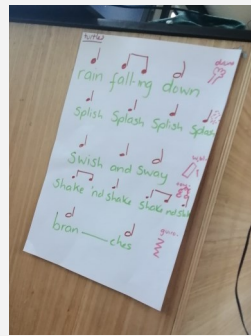 rain falling down
Splish Splash Splish Splash
Swish and Sway
Shake 'nd shake shake nd shake
bran — ches